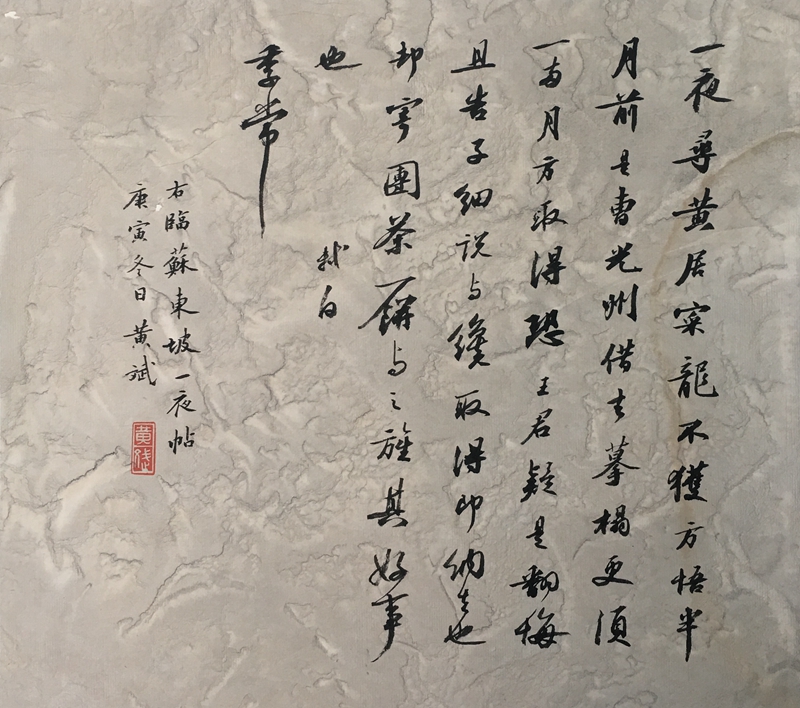 一夜尋黃居寀龍不獲方悟半
月前是曹光州借去摹榻更須
一兩月方取得恐王君疑是翻悔
且告子細說與纔取得即納去也
却寄團茶一餅與之旌其好事
也
軾白
季常
右臨蘇東坡一夜帖
庚寅冬日黃斌
黃